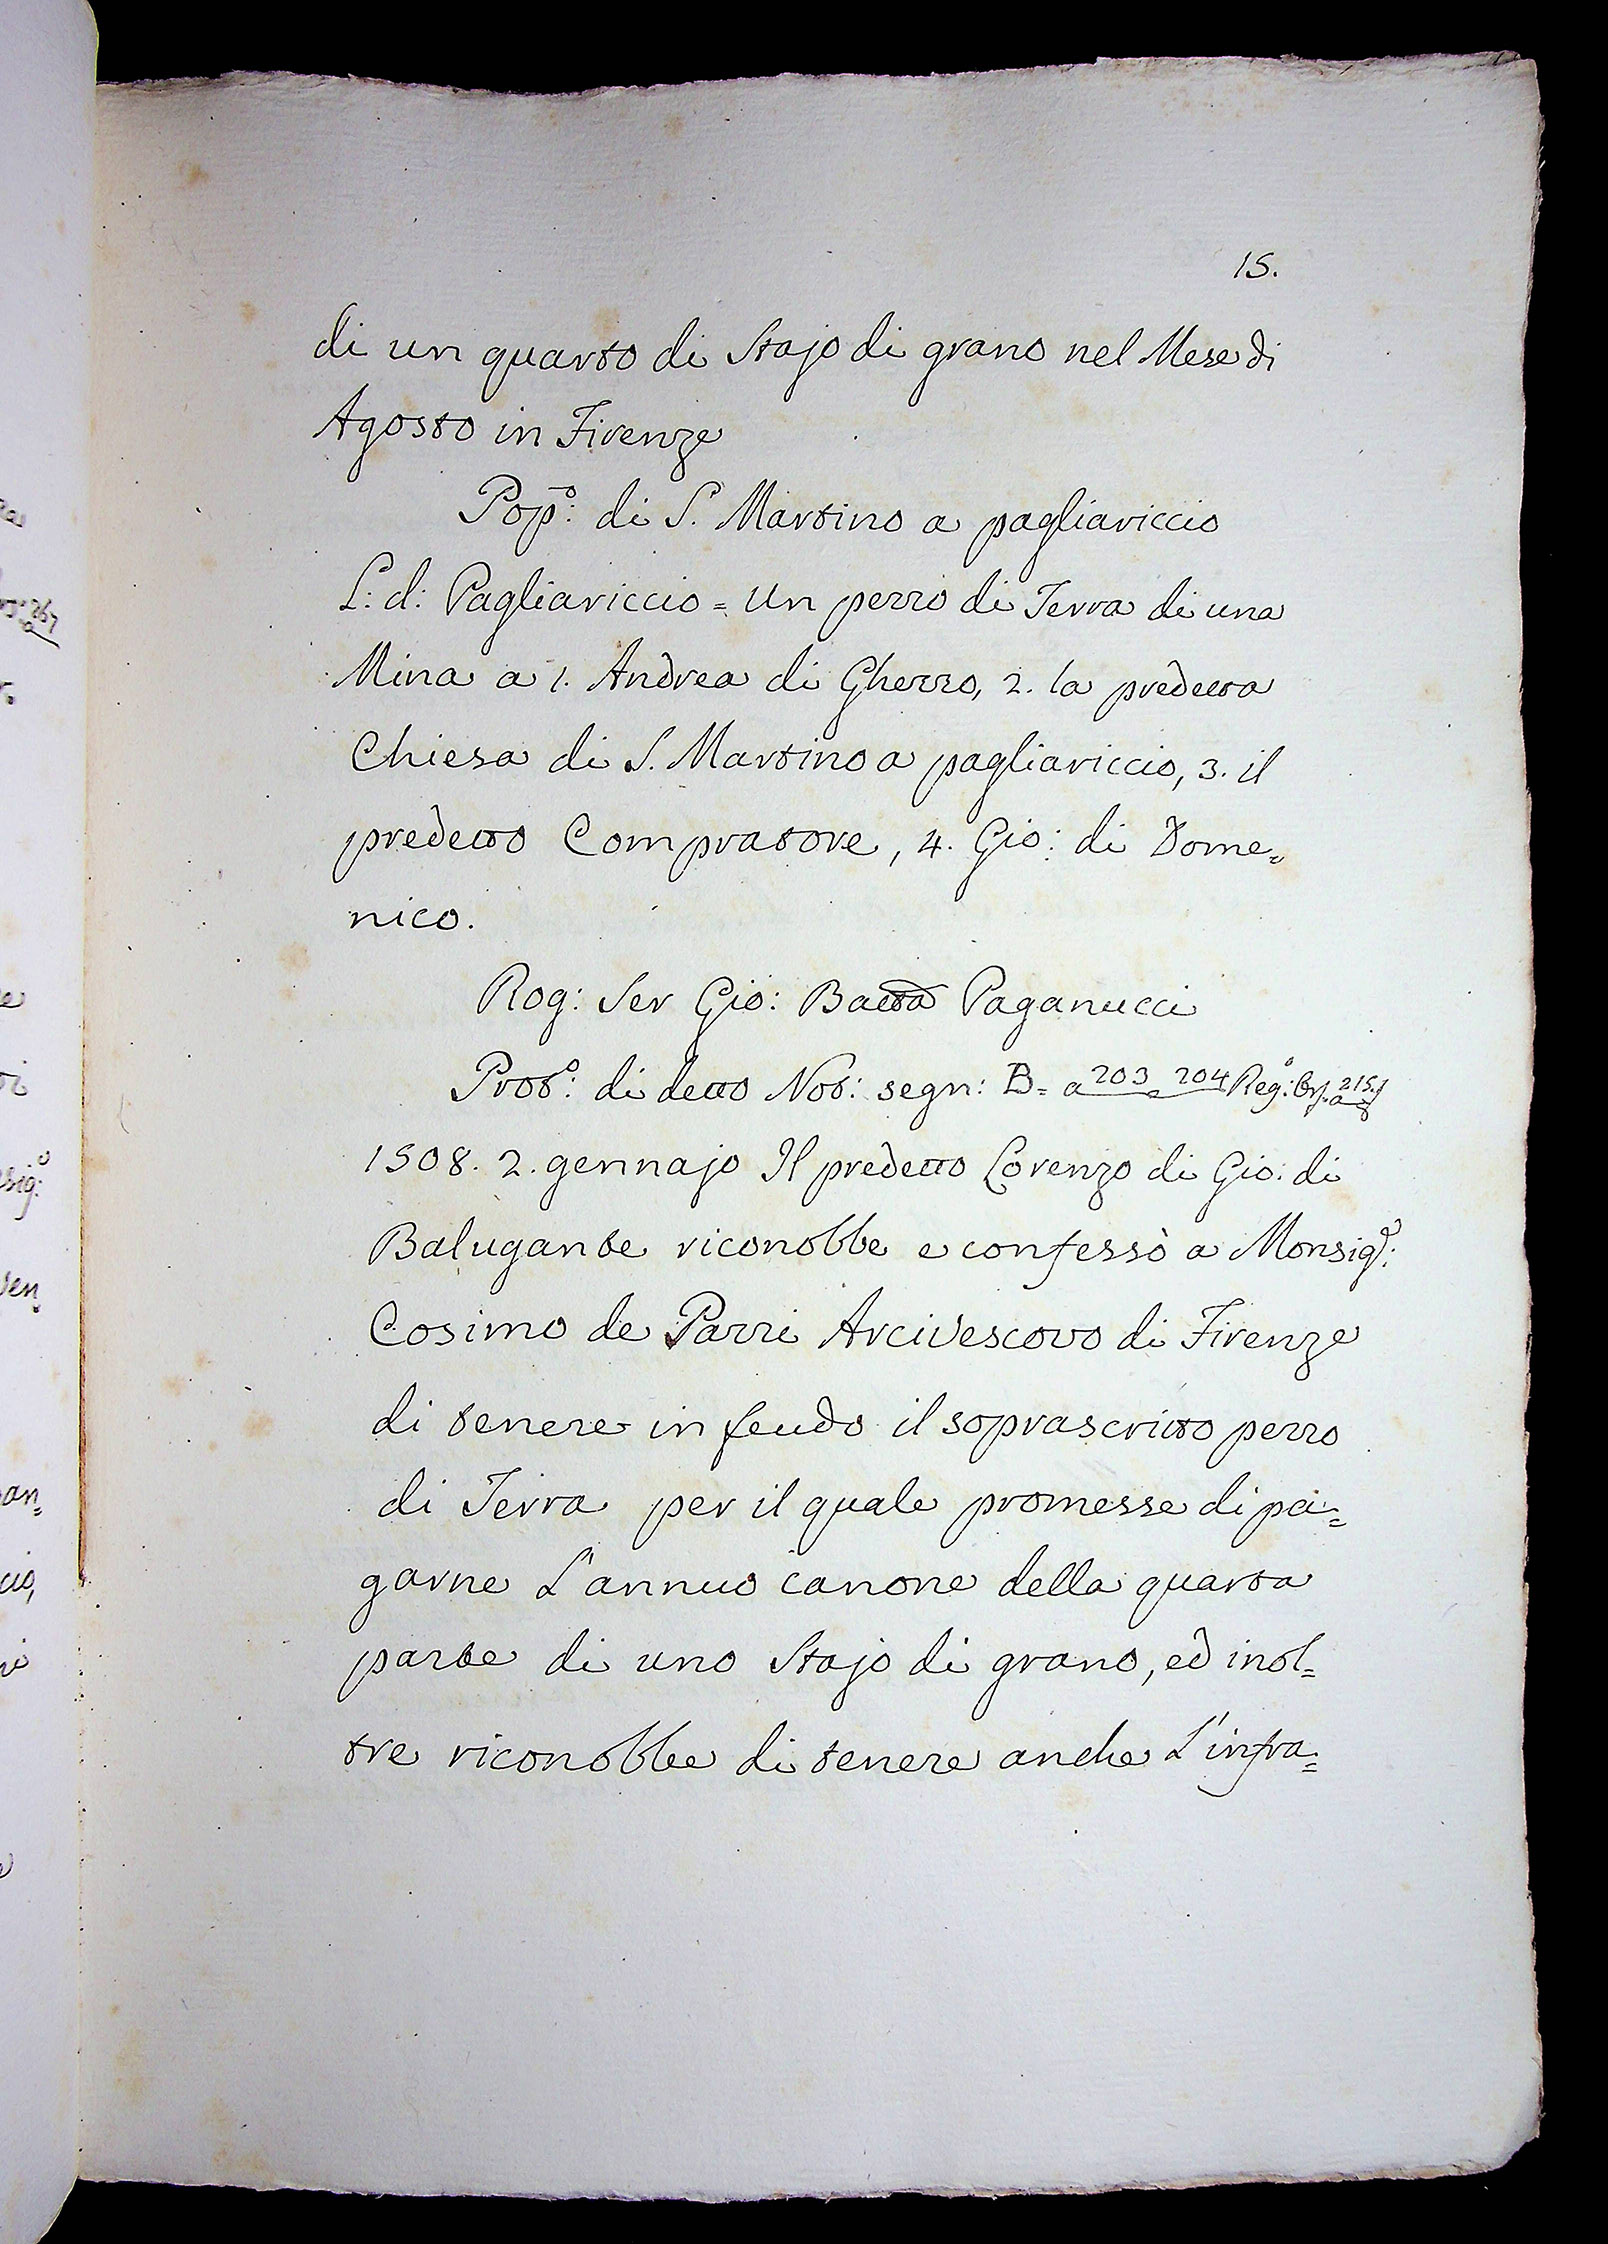 15.
di un quarto di Stajo di grano nel Mese di
Agosto in Firenze
Pop.º: di S. Martino a pagliariccio
L: d: Pagliariccio = Un pezzo di Terra di una
Mina a 1. Andrea di Ghezzo, 2. la predetta
Chiesa di S. Martino a pagliariccio, 3. il
predetto Compratore, 4. Gio: di Dome=
nico.
Rog: Ser Gio: Batta Paganucci
Prot.º: di detto Not: segn: B= a 203 e 204 Reg.º: 215.
1508. 2. gennajo Il predetto Lorenzo di Gio: di
Balugante riconobbe e confessò a Monsig.r:
Cosimo de Pazzi Arcivescovo di Firenze
di tenere in feudo il soprascritto pezzo
di Terra per il quale promesse di pa=
garne L'annuo canone della quarta
parte di uno Stajo di grano, ed inol=
tre riconobbe di tenere anche L'infra=